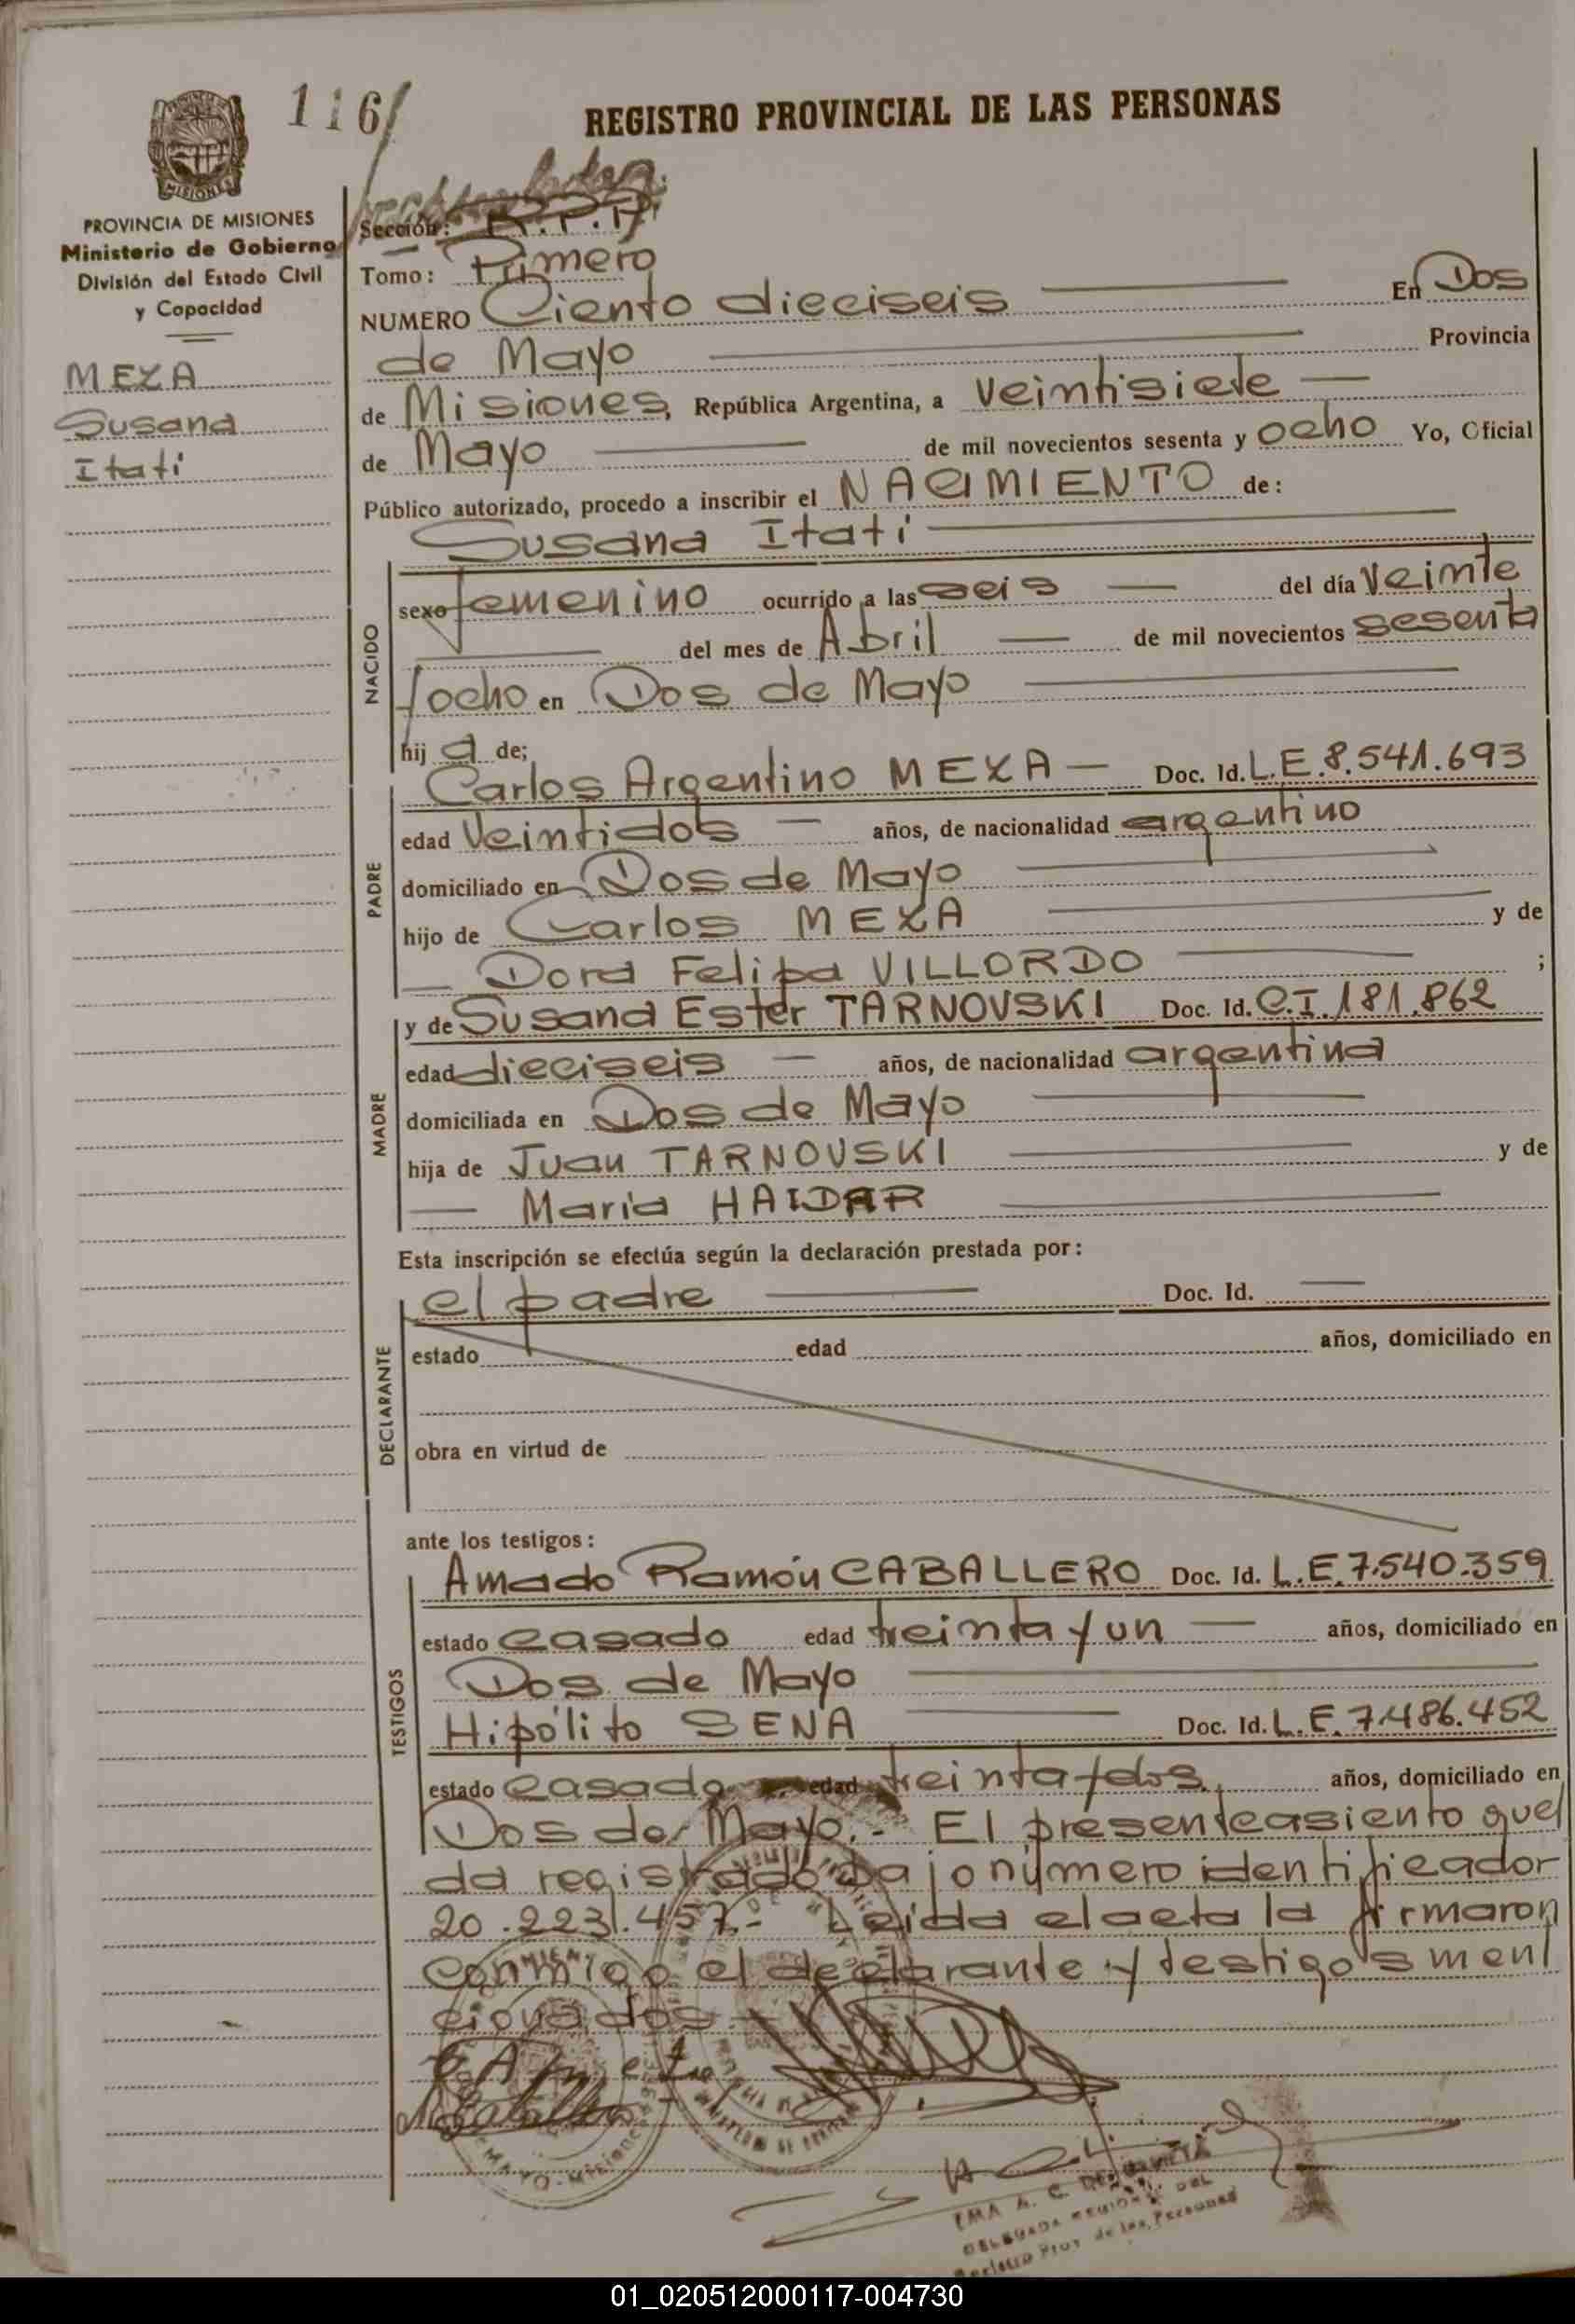 116
REGISTRO PROVINCIAL DE LAS PERSONAS
MISIONES
PROVINCIA DE MISIONES
Ministerio de Gobierno
División del Estado Civil
y Capacidad
MEXA
Susana
Itatí
Sección: R.P.P.
Tomo: Primero
NUMERO Ciento dieciseis En Dos
de Mayo Provincia
de Misiones, República Argentina, a veintisiete
de Mayo de mil novecientos sesenta y ocho Yo, Oficial
Público autorizado, procedo a inscribir el NACIMIENTO de:
Susana Itatí
NACIDO
sexo femenino ocurrido a las seis del día veinte
del mes de Abril de mil novecientos sesenta
/ocho en Dos de Mayo
hij a de;
PADRE
Carlos Argentino MEXA Doc. Id. L.E.8.541.693
edad veintidos años, de nacionalidad argentino
domiciliado en Dos de Mayo
hijo de Carlos MEXA y de
Dora Felipa VILLORDO ;
MADRE
y de Susana Ester TARNOVSKI Doc. Id. C.I.181.862
edad dieciseis años, de nacionalidad argentina
domiciliada en Dos de Mayo
hija de Juan TARNOVSKI y de
Maria HAIDAR
Esta inscripción se efectúa según la declaración prestada por:
DECLARANTE
el padre Doc. Id.
estado edad años, domiciliado en
obra en virtud de
ante los testigos:
TESTIGOS
Amado Ramón CABALLERO Doc. Id. L.E.7.540.359
estado casado edad treinta y un años, domiciliado en
Dos de Mayo
Hipólito SENA Doc. Id. L.E.7.486.452
estado casado edad treinta y dos años, domiciliado en
Dos de Mayo.- El presente asiento que/
da registrado bajo número identificador
20.223.457.- Leída el acta la firmaron
conmigo el declarante y testigos men/
cionados.-
EMA A. C. DE
DELEGADA REGIONAL DEL
Registro Prov. de las Personas
01_020512000117-004730